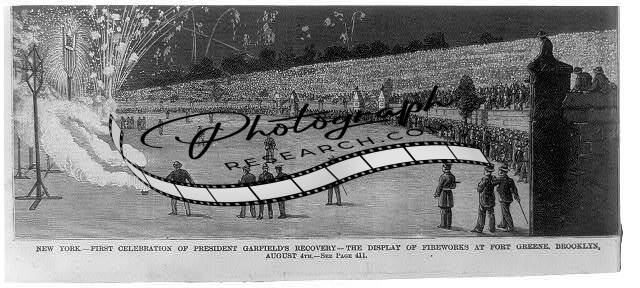 Photograph
RESEARCH.COM
NEW YORK.—FIRST CELEBRATION OF PRESIDENT GARFIELD'S RECOVERY—THE DISPLAY OF FIREWORKS AT FORT GREENE, BROOKLYN,
AUGUST 4TH.—SEE PAGE 411.